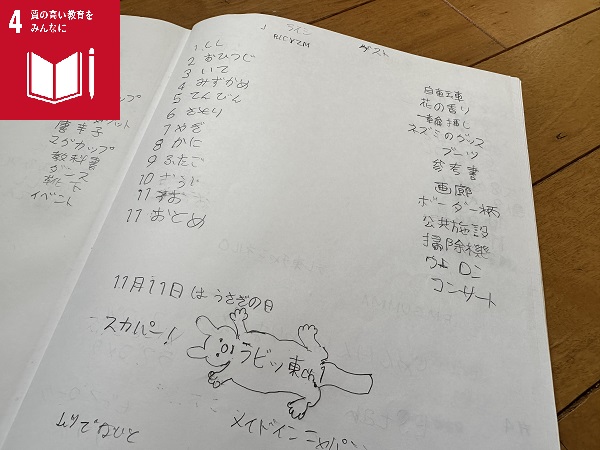 4 質の高い教育を
みんなに
ライン
ゲスト
1 しし
2 おひつじ
3 いて
4 みずがめ
5 てんびん
6 さそり
7 やぎ
8 かに
9 ふたご
10
11
11 おとめ
自電車
花の香り
一輪挿し
ネズミのグッズ
ブーツ
参考書
画廊
ボーダー柄
公共施設
掃除機
コンサート
唐辛子
マグカップ
教科書
イベント
11月11日はうさぎの日
スカパー!
ラビッ東ch!
メイドイン